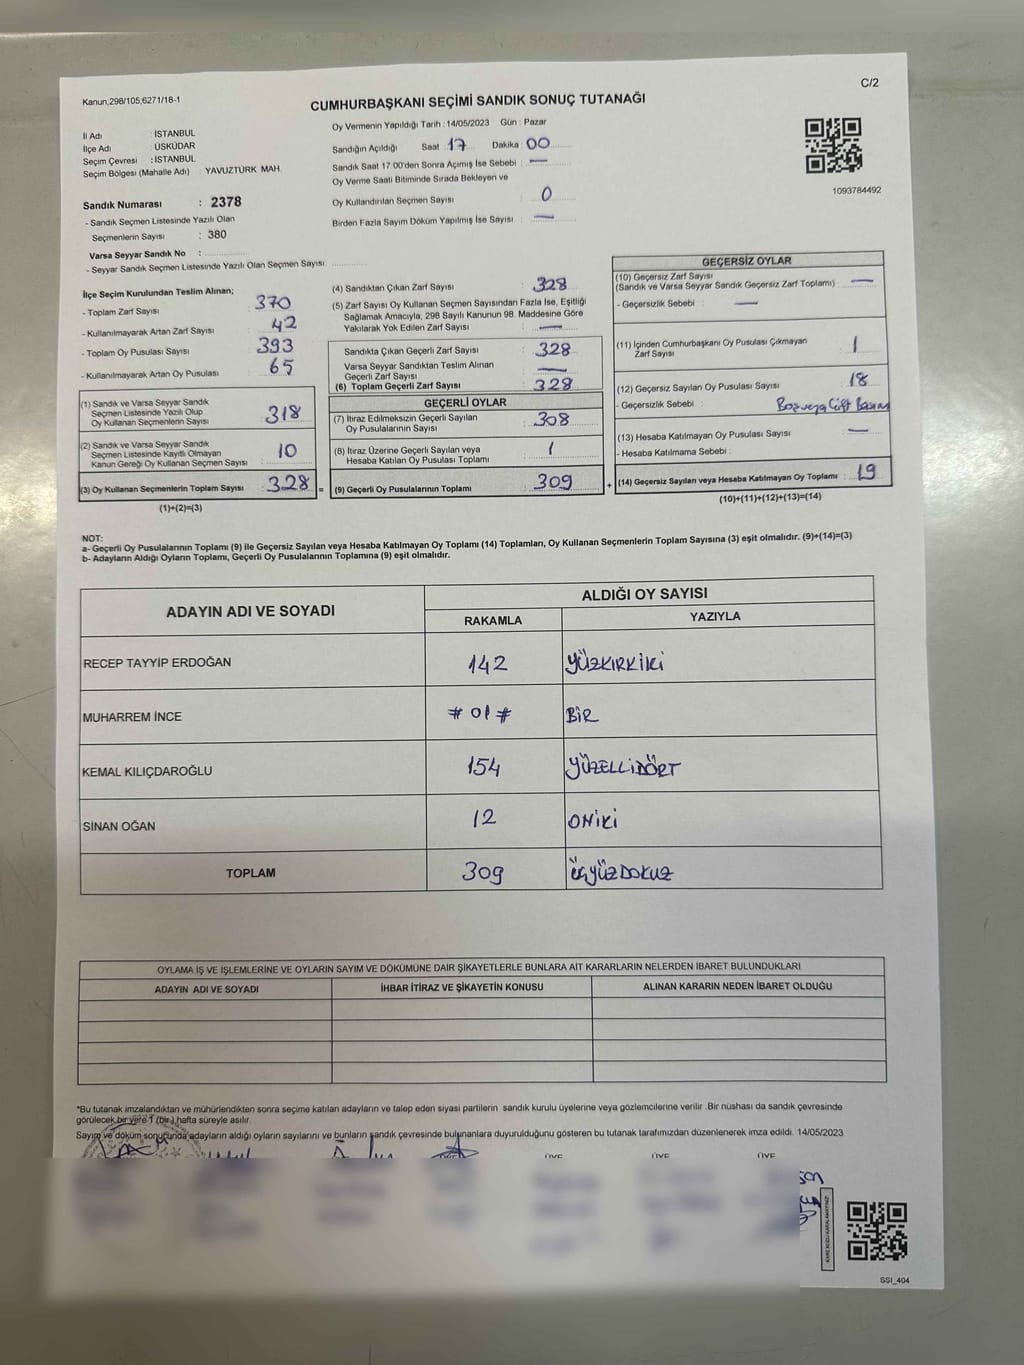 C/2
Kanun,298/105;6271/18-1
CUMHURBAŞKANI SEÇİMİ SANDIK SONUÇ TUTANAĞI
İl Adı : İSTANBUL
İlçe Adı : ÜSKÜDAR
Seçim Çevresi : İSTANBUL
Seçim Bölgesi (Mahalle Adı) : YAVUZTÜRK MAH.
Sandık Numarası : 2378
- Sandık Seçmen Listesinde Yazılı Olan
Seçmenlerin Sayısı : 380
Varsa Seyyar Sandık No :
- Seyyar Sandık Seçmen Listesinde Yazılı Olan Seçmen Sayısı
Oy Vermenin Yapıldığı Tarih : 14/05/2023 Gün : Pazar
Sandığın Açıldığı Saat 17 Dakika 00
Sandık Saat 17:00'den Sonra Açımış İse Sebebi : —
Oy Verme Saati Bitiminde Sırada Bekleyen ve
Oy Kullandırılan Seçmen Sayısı : 0
Birden Fazla Sayım Döküm Yapılmış İse Sayısı : —
1093784492
İlçe Seçim Kurulundan Teslim Alınan;
- Toplam Zarf Sayısı 370
- Kullanılmayarak Artan Zarf Sayısı 42
- Toplam Oy Pusulası Sayısı 393
- Kullanılmayarak Artan Oy Pusulası 65
(1) Sandık ve Varsa Seyyar Sandık
Seçmen Listesinde Yazılı Olup
Oy Kullanan Seçmenlerin Sayısı 318
(2) Sandık ve Varsa Seyyar Sandık
Seçmen Listesinde Kayıtlı Olmayan
Kanun Gereği Oy Kullanan Seçmen Sayısı 10
(3) Oy Kullanan Seçmenlerin Toplam Sayısı 328 =
(1)+(2)=(3)
(4) Sandıktan Çıkan Zarf Sayısı : 328
(5) Zarf Sayısı Oy Kullanan Seçmen Sayısından Fazla İse, Eşitliği
Sağlamak Amacıyla, 298 Sayılı Kanunun 98. Maddesine Göre
Yakılarak Yok Edilen Zarf Sayısı : —
Sandıkta Çıkan Geçerli Zarf Sayısı : 328
Varsa Seyyar Sandıktan Teslim Alınan
Geçerli Zarf Sayısı : —
(6) Toplam Geçerli Zarf Sayısı : 328
GEÇERLİ OYLAR
(7) İtiraz Edilmeksizin Geçerli Sayılan
Oy Pusulalarının Sayısı : 308
(8) İtiraz Üzerine Geçerli Sayılan veya
Hesaba Katılan Oy Pusulası Toplamı : 1
(9) Geçerli Oy Pusulalarının Toplamı : 309 +
GEÇERSİZ OYLAR
(10) Geçersiz Zarf Sayısı
(Sandık ve Varsa Seyyar Sandık Geçersiz Zarf Toplamı) : —
- Geçersizlik Sebebi : —
(11) İçinden Cumhurbaşkanı Oy Pusulası Çıkmayan
Zarf Sayısı : 1
(12) Geçersiz Sayılan Oy Pusulası Sayısı : 18
- Geçersizlik Sebebi : Boş veya Çift Basım
(13) Hesaba Katılmayan Oy Pusulası Sayısı : —
- Hesaba Katılmama Sebebi :
(14) Geçersiz Sayılan veya Hesaba Katılmayan Oy Toplamı : 19
(10)+(11)+(12)+(13)=(14)
NOT:
a- Geçerli Oy Pusulalarının Toplamı (9) ile Geçersiz Sayılan veya Hesaba Katılmayan Oy Toplamı (14) Toplamları, Oy Kullanan Seçmenlerin Toplam Sayısına (3) eşit olmalıdır. (9)+(14)=(3)
b- Adayların Aldığı Oyların Toplamı, Geçerli Oy Pusulalarının Toplamına (9) eşit olmalıdır.
ADAYIN ADI VE SOYADI ALDIĞI OY SAYISI
RAKAMLA YAZIYLA
RECEP TAYYİP ERDOĞAN 142 YÜZKIRKİKİ
MUHARREM İNCE # 01 # BİR
KEMAL KILIÇDAROĞLU 154 YÜZELLİDÖRT
SİNAN OĞAN 12 ONİKİ
TOPLAM 309 ÜÇYÜZDOKUZ
OYLAMA İŞ VE İŞLEMLERİNE VE OYLARIN SAYIM VE DÖKÜMÜNE DAİR ŞİKAYETLERLE BUNLARA AİT KARARLARIN NELERDEN İBARET BULUNDUKLARI
ADAYIN ADI VE SOYADI İHBAR İTİRAZ VE ŞİKAYETİN KONUSU ALINAN KARARIN NEDEN İBARET OLDUĞU
*Bu tutanak imzalandıktan ve mühürlendikten sonra seçime katılan adayların ve talep eden siyasi partilerin sandık kurulu üyelerine veya gözlemcilerine verilir. Bir nüshası da sandık çevresinde
görülecek bir yere 1 (bir) hafta süreyle asılır.
Sayım ve döküm sonucunda adayların aldığı oyların sayılarını ve bunların sandık çevresinde bulunanlara duyurulduğunu gösteren bu tutanak tarafımızdan düzenlenerek imza edildi. 14/05/2023
ÜYE ÜYE ÜYE
SSI_404